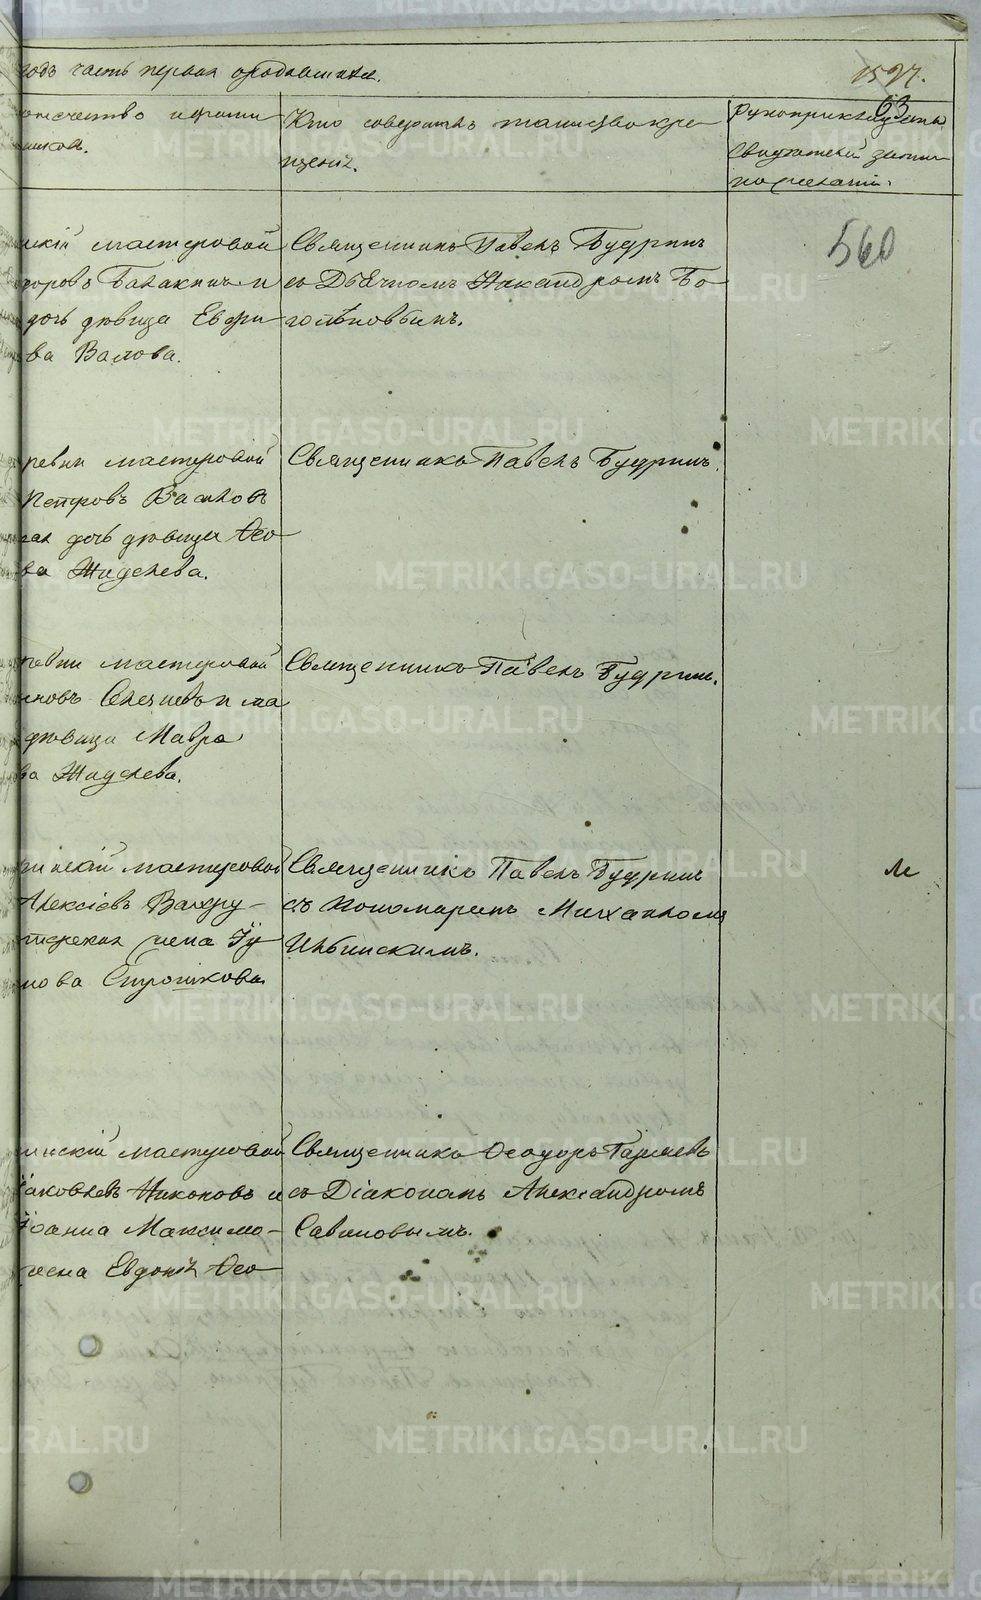 METRIKI.GASO-URAL.RU
годъ часть первая о родившихся.
1597.
63
отчество и фами
никовъ.
Кто совершалъ таинство кре-
щенія.
Рукоприкладство
свидѣтелей записи
по желанію.
560
скій мастеровой
доровъ Балакинъ и
дочь дѣвица Евфи
ва Валова.
Священникъ Павелъ Будринъ
съ Дьячкомъ Никандромъ Бо
голѣповымъ.
ревни мастеровой
Петровъ
дочь дѣвица Ѳео
ва Жиделева.
Священникъ Павелъ Будринъ.
ревни мастеровой
новъ и ма
дѣвица Мавра
ва Жиделева.
Священникъ Павелъ Будринъ.
инскій мастеровой
Алексіевъ Вахру-
жена Іу
нова Строшкова.
Священникъ Павелъ Будринъ
съ Пономаремъ Михаиломъ
Ильинскимъ.
м
инскій мастеровой
Іаковлевъ Никоновъ и
Іоанна Максимо-
жена Евдокія Ѳео
Священникъ Ѳеодоръ Гаряевъ
съ Діакономъ Александромъ
Савиновымъ.